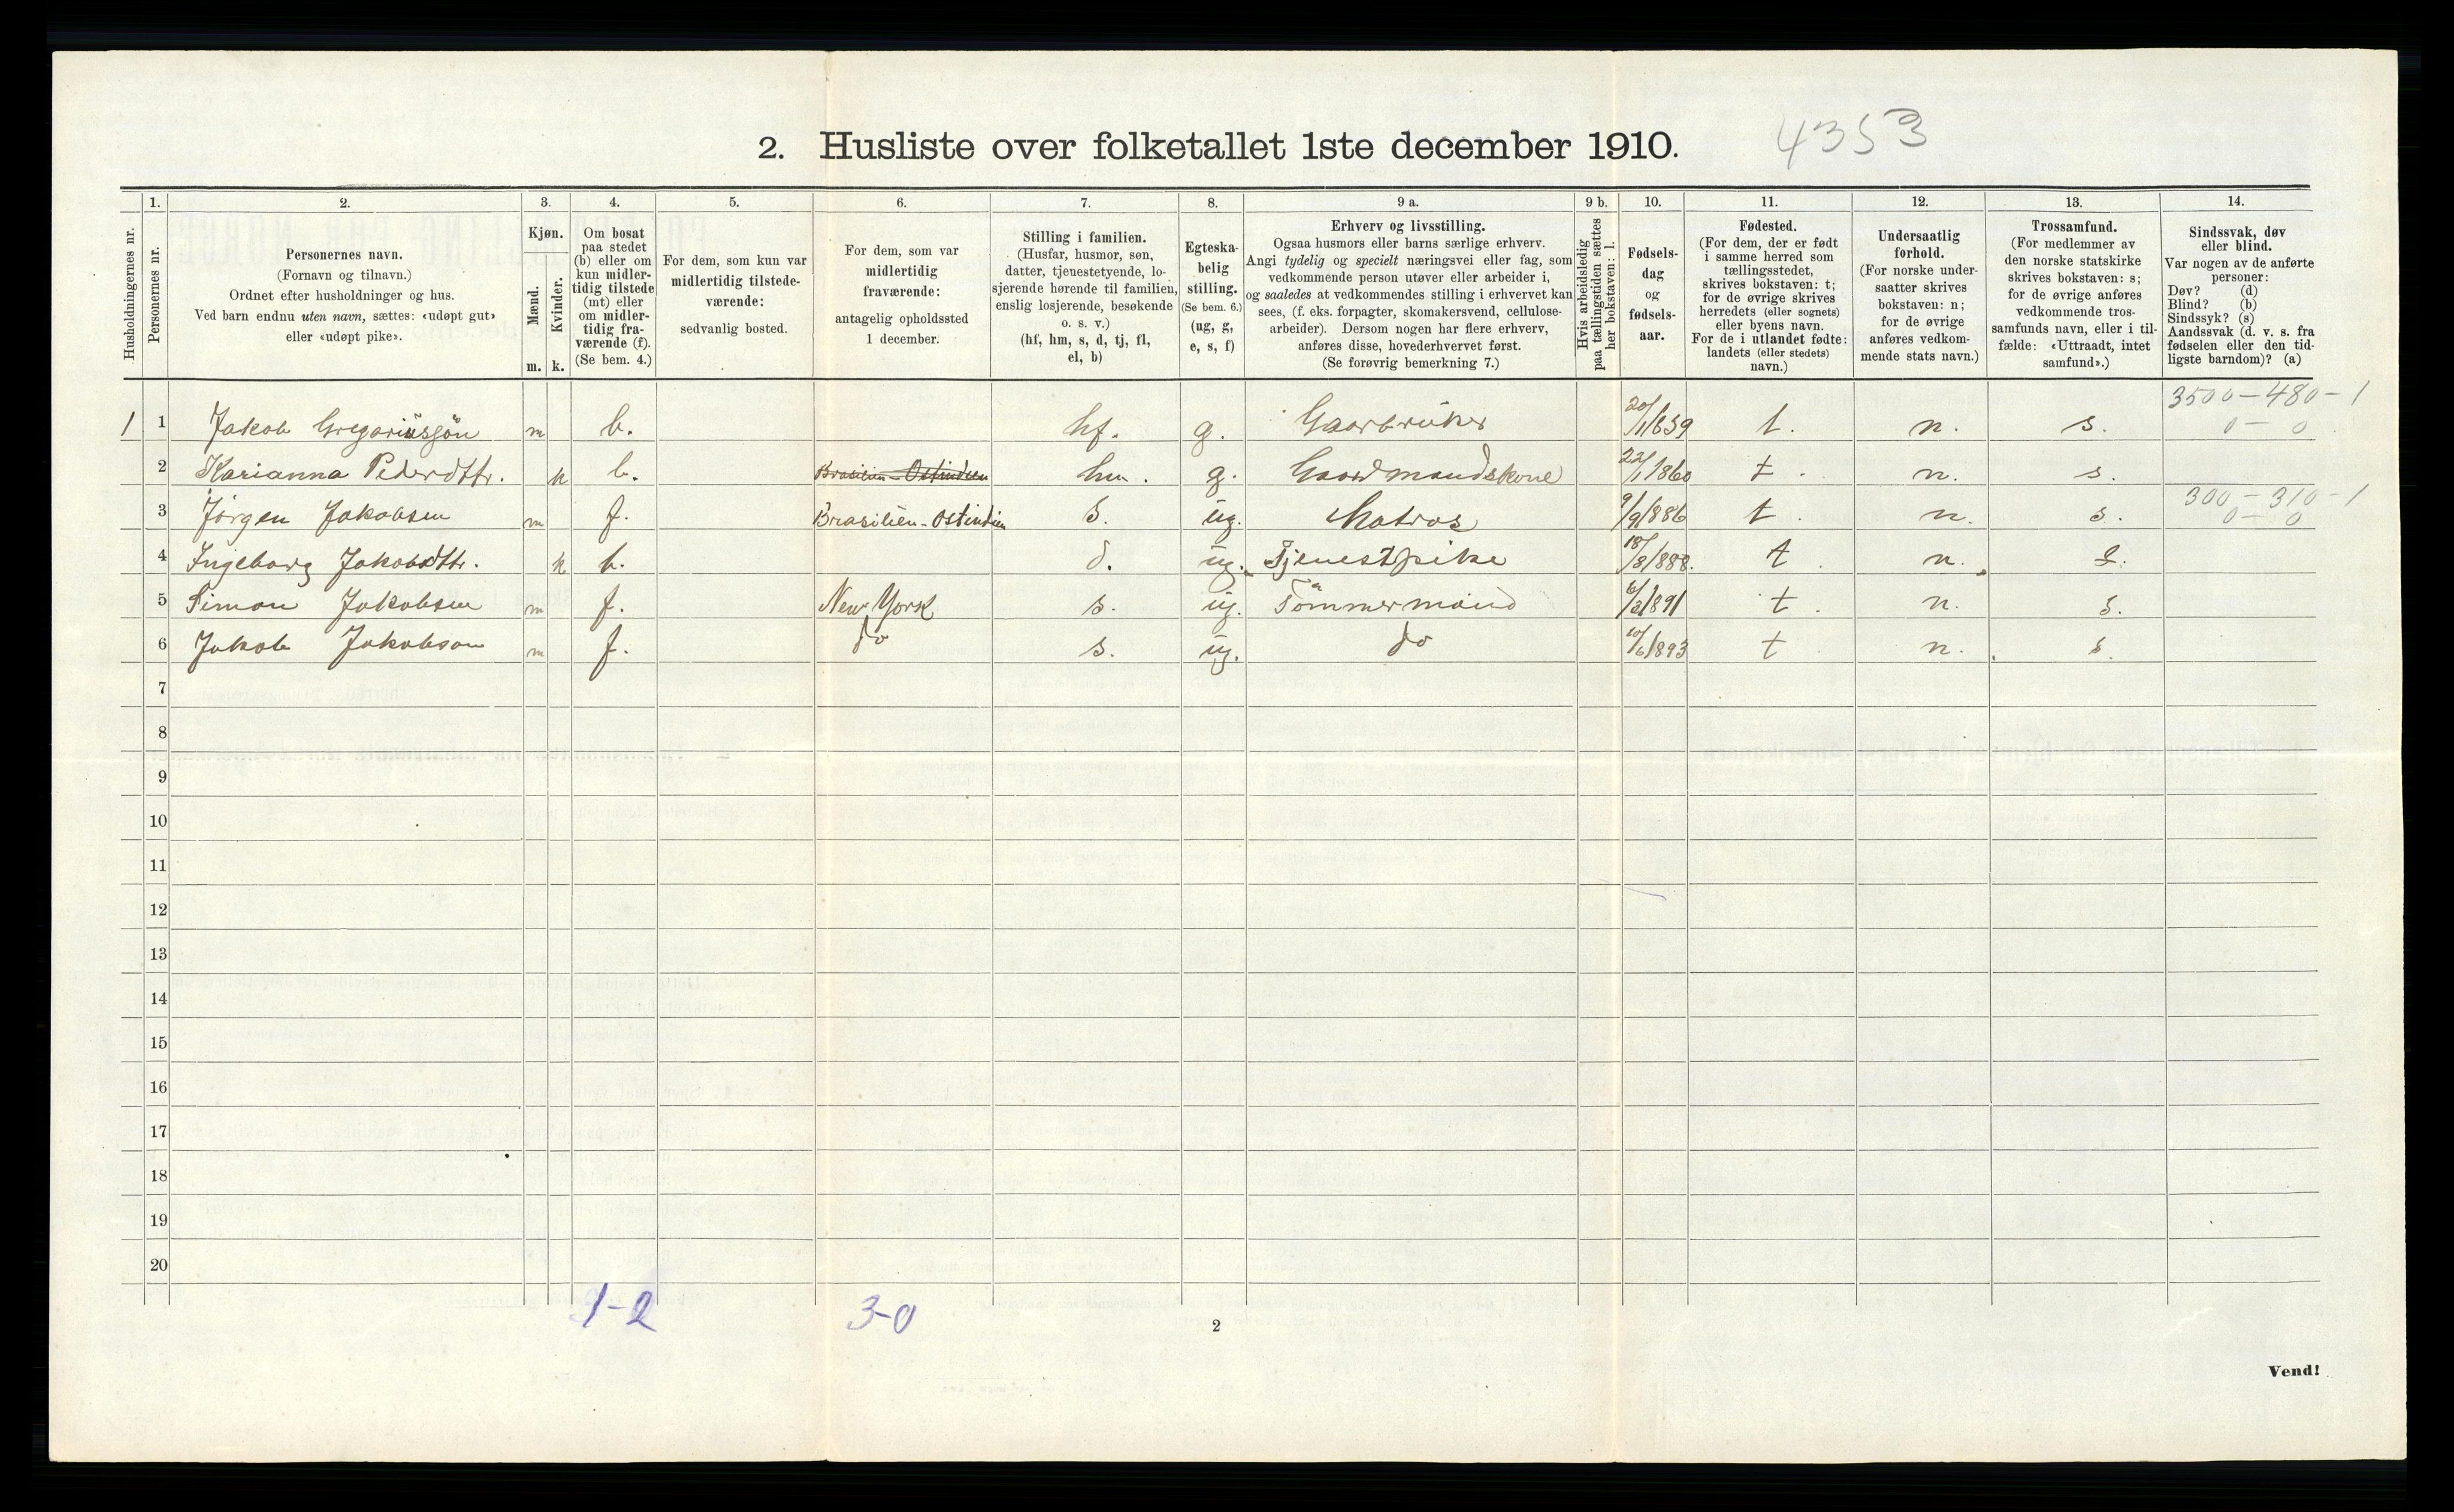 2. Husliste over folketallet 1ste december 1910.
4353
Husholdningernes nr.
1.
Personernes nr.
2.
Personernes navn.
(Fornavn og tilnavn.)
Ordnet efter husholdninger og hus.
Ved barn endnu uten navn, sættes: «udøpt gut»
eller «udøpt pike».
3.
Kjøn.
Mænd.
Kvinder.
m. k.
4.
Om bosat
paa stedet
(b) eller om
kun midler-
tidig tilstede
(mt) eller
om midler-
tidig fra-
værende (f).
(Se bem. 4.)
5.
For dem, som kun var
midlertidig tilstede-
værende:
sedvanlig bosted.
6.
For dem, som var
midlertidig
fraværende:
antagelig opholdssted
1 december.
7.
Stilling i familien.
(Husfar, husmor, søn,
datter, tjenestetyende, lo-
sjerende hørende til familien,
enslig losjerende, besøkende
o. s. v.)
(hf, hm, s, d, tj, fl,
el, b)
8.
Egteska-
belig
stilling.
(Se bem. 6.)
(ug, g,
e, s, f)
9 a.
Erhverv og livsstilling.
Ogsaa husmors eller barns særlige erhverv.
Angi tydelig og specielt næringsvei eller fag, som
vedkommende person utøver eller arbeider i,
og saaledes at vedkommendes stilling i erhvervet kan
sees, (f. eks. forpagter, skomakersvend, cellulose-
arbeider). Dersom nogen har flere erhverv,
anføres disse, hovederhvervet først.
(Se forøvrig bemerkning 7.)
9 b.
Hvis arbeidsledig
paa tællingstiden sættes
her bokstaven: l.
10.
Fødsels-
dag
og
fødsels-
aar.
11.
Fødested.
(For dem, der er født
i samme herred som
tællingsstedet,
skrives bokstaven: t;
for de øvrige skrives
herredets (eller sognets)
eller byens navn.
For de i utlandet fødte:
landets (eller stedets)
navn.)
12.
Undersaatlig
forhold.
(For norske under-
saatter skrives
bokstaven: n;
for de øvrige
anføres vedkom-
mende stats navn.)
13.
Trossamfund.
(For medlemmer av
den norske statskirke
skrives bokstaven: s;
for de øvrige anføres
vedkommende tros-
samfunds navn, eller i til-
fælde: «Uttraadt, intet
samfund».)
14.
Sindssvak, døv
eller blind.
Var nogen av de anførte
personer:
Døv? (d)
Blind? (b)
Sindssyk? (s)
Aandssvak (d. v. s. fra
fødselen eller den tid-
ligste barndom)? (a)
3500 – 480 – 1
1 1 Jakob Gregoriussøn m b. hf. g. Gaarbruker 20/1 1839 t. n. s. 0 – 0
2 Karianna Pedersdtr. k b. Brasilien – Ostindien hm. g. Gaardmandskone 22/1 1860 t. n. s.
300 – 310 – 1
3 Jörgen Jakobsen m f. Brasilien – Ostindien s. ug. Matros 9/9 1886 t. n. s. 0 – 0
4 Ingeborg Jakobsdtr. k b. d. ug. Tjenestpike 18/8 1888. t. n. s.
5 Simon Jakobsen m f. New York s. ug. Tömmermand t. n. s.
6 Jakob Jakobsen m f. do s. ug. do 10/6 1893 t n. s.
7
8
9
10
11
12
13
14
15
16
17
18
19
20
1-2 3-0
2
Vend!